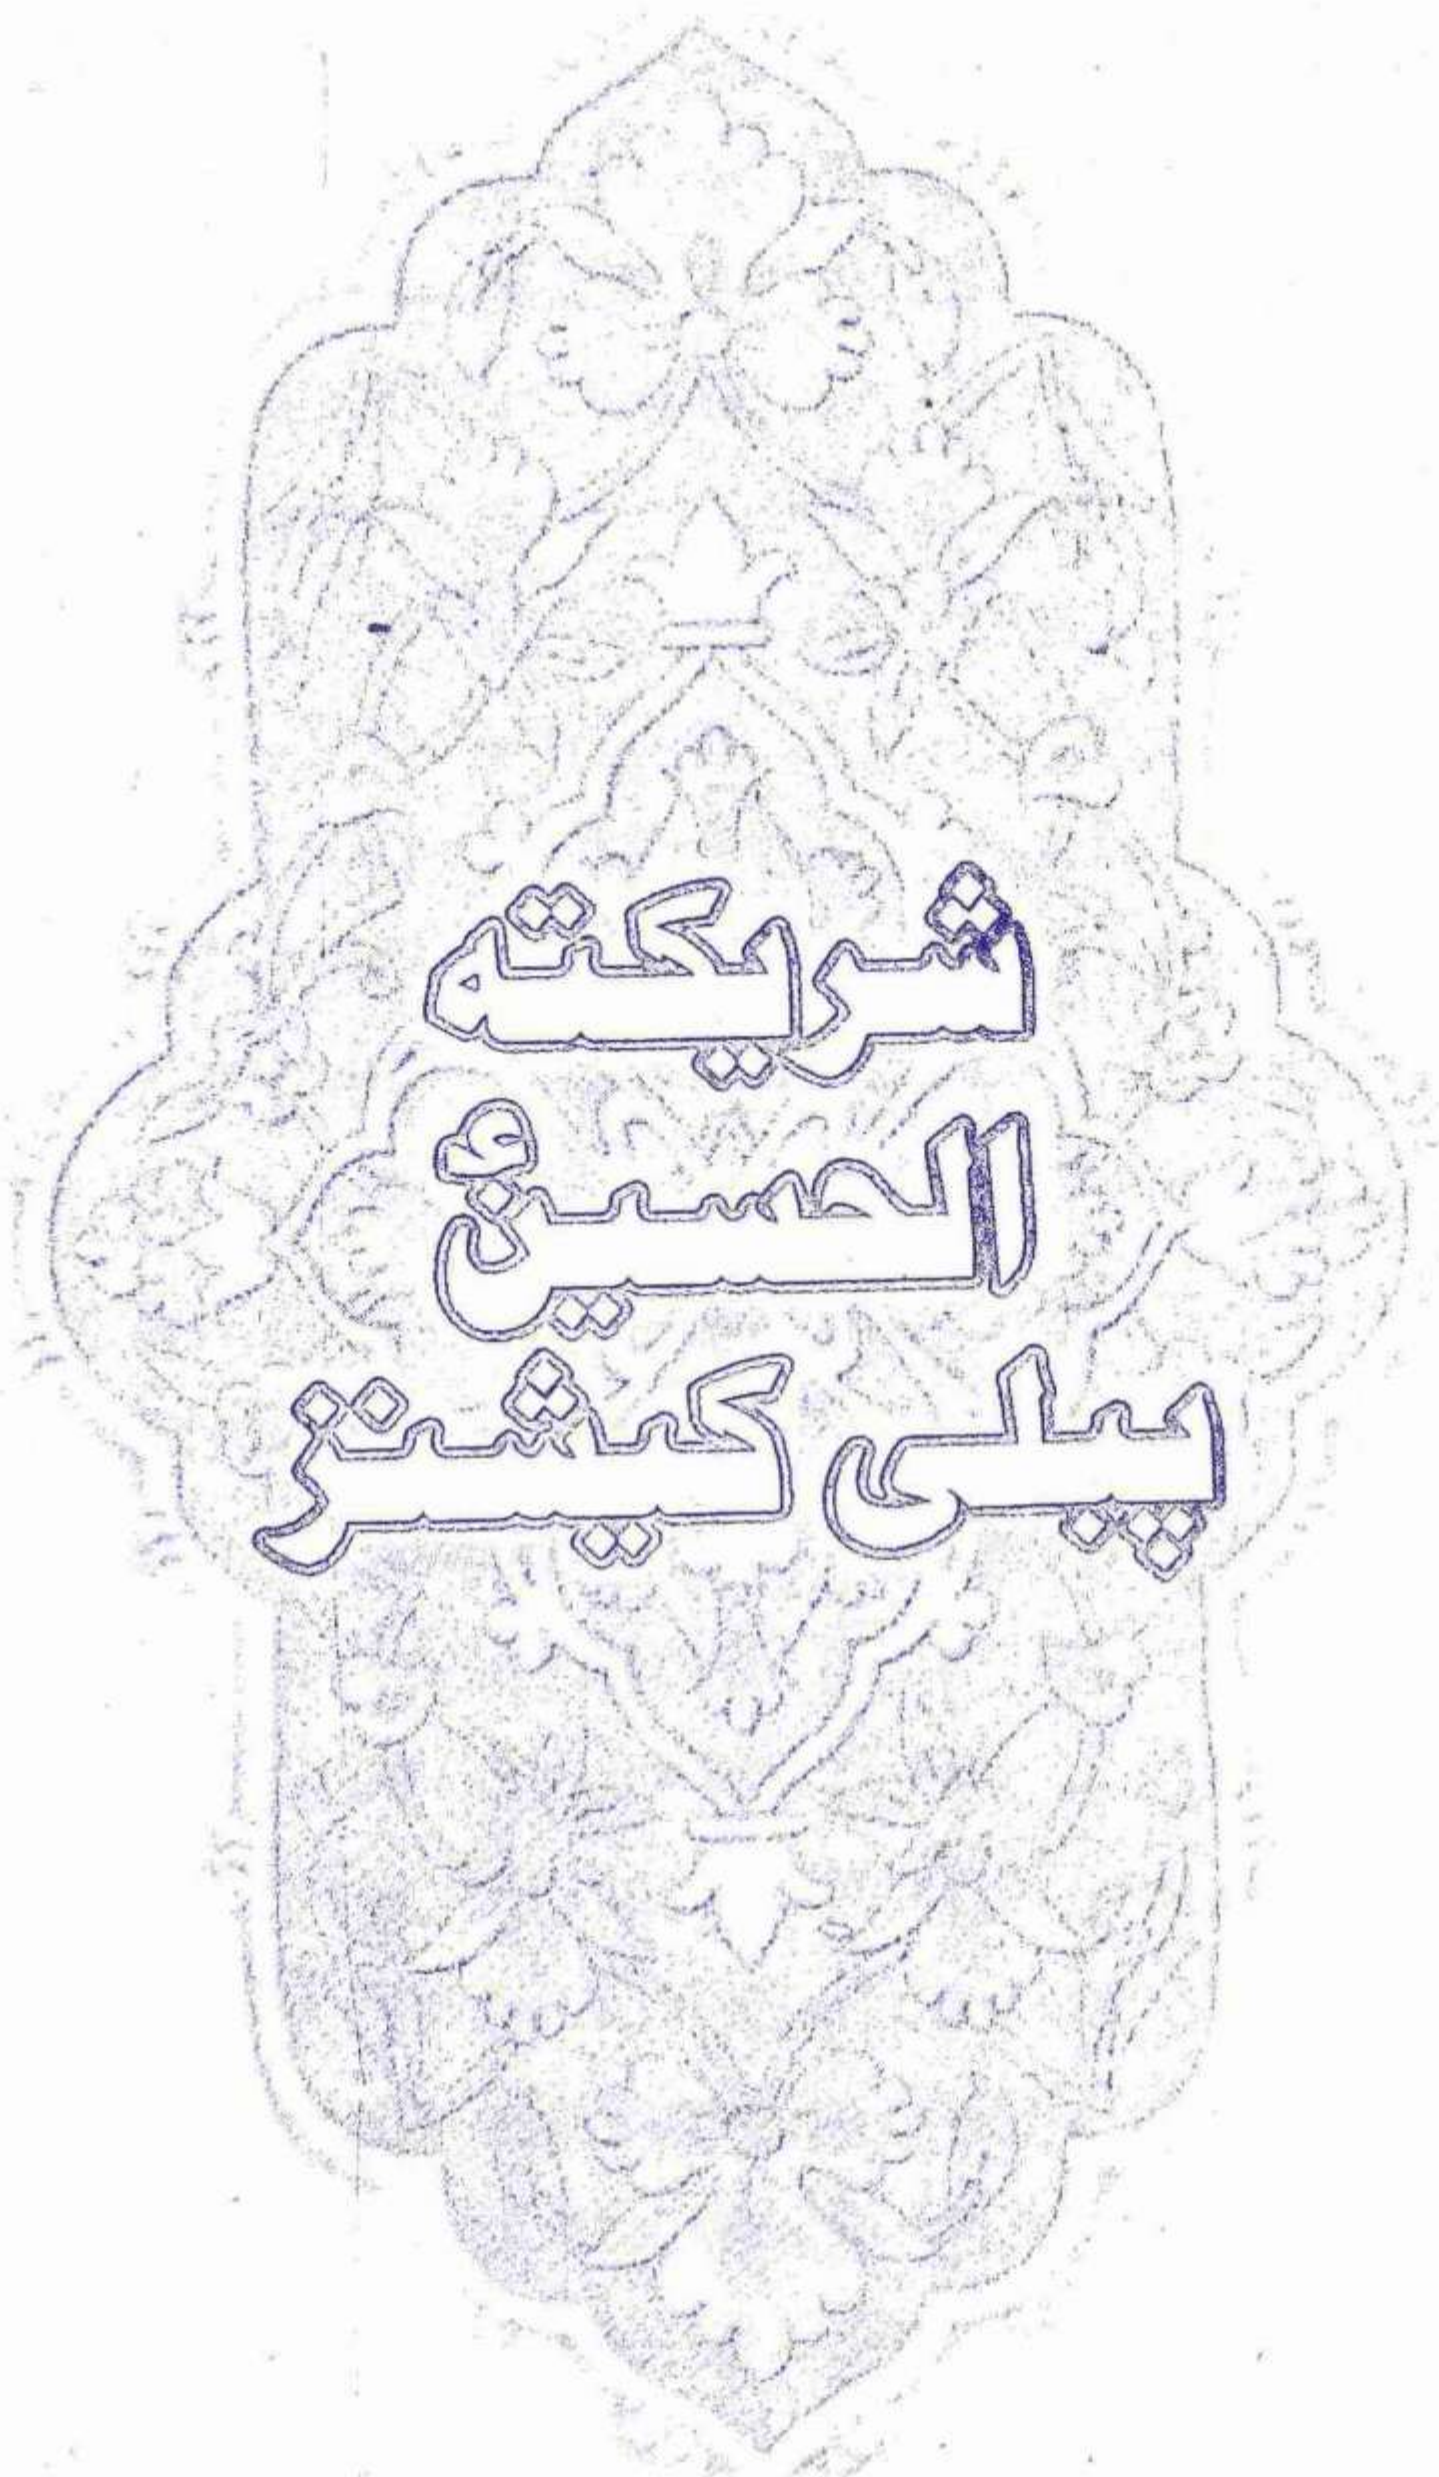 شریکتہ
الحسینؑ
پبلی کیشنز